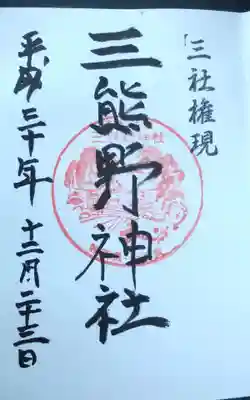 「三社権現
三熊野神社
平成三十年 十二月二十三日